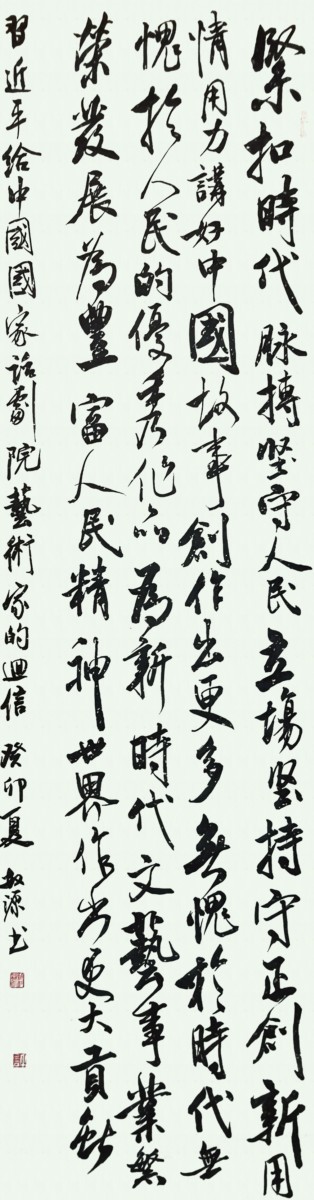 緊扣時代脉搏堅守人民立場堅持守正創新用
情用力講好中國故事創作出更多無愧於時代無
愧於人民的優秀作品為新時代文藝事業繁
榮發展為豐富人民精神世界作出更大貢獻
習近平給中國國家話劇院藝術家的迴信 癸卯夏 源書